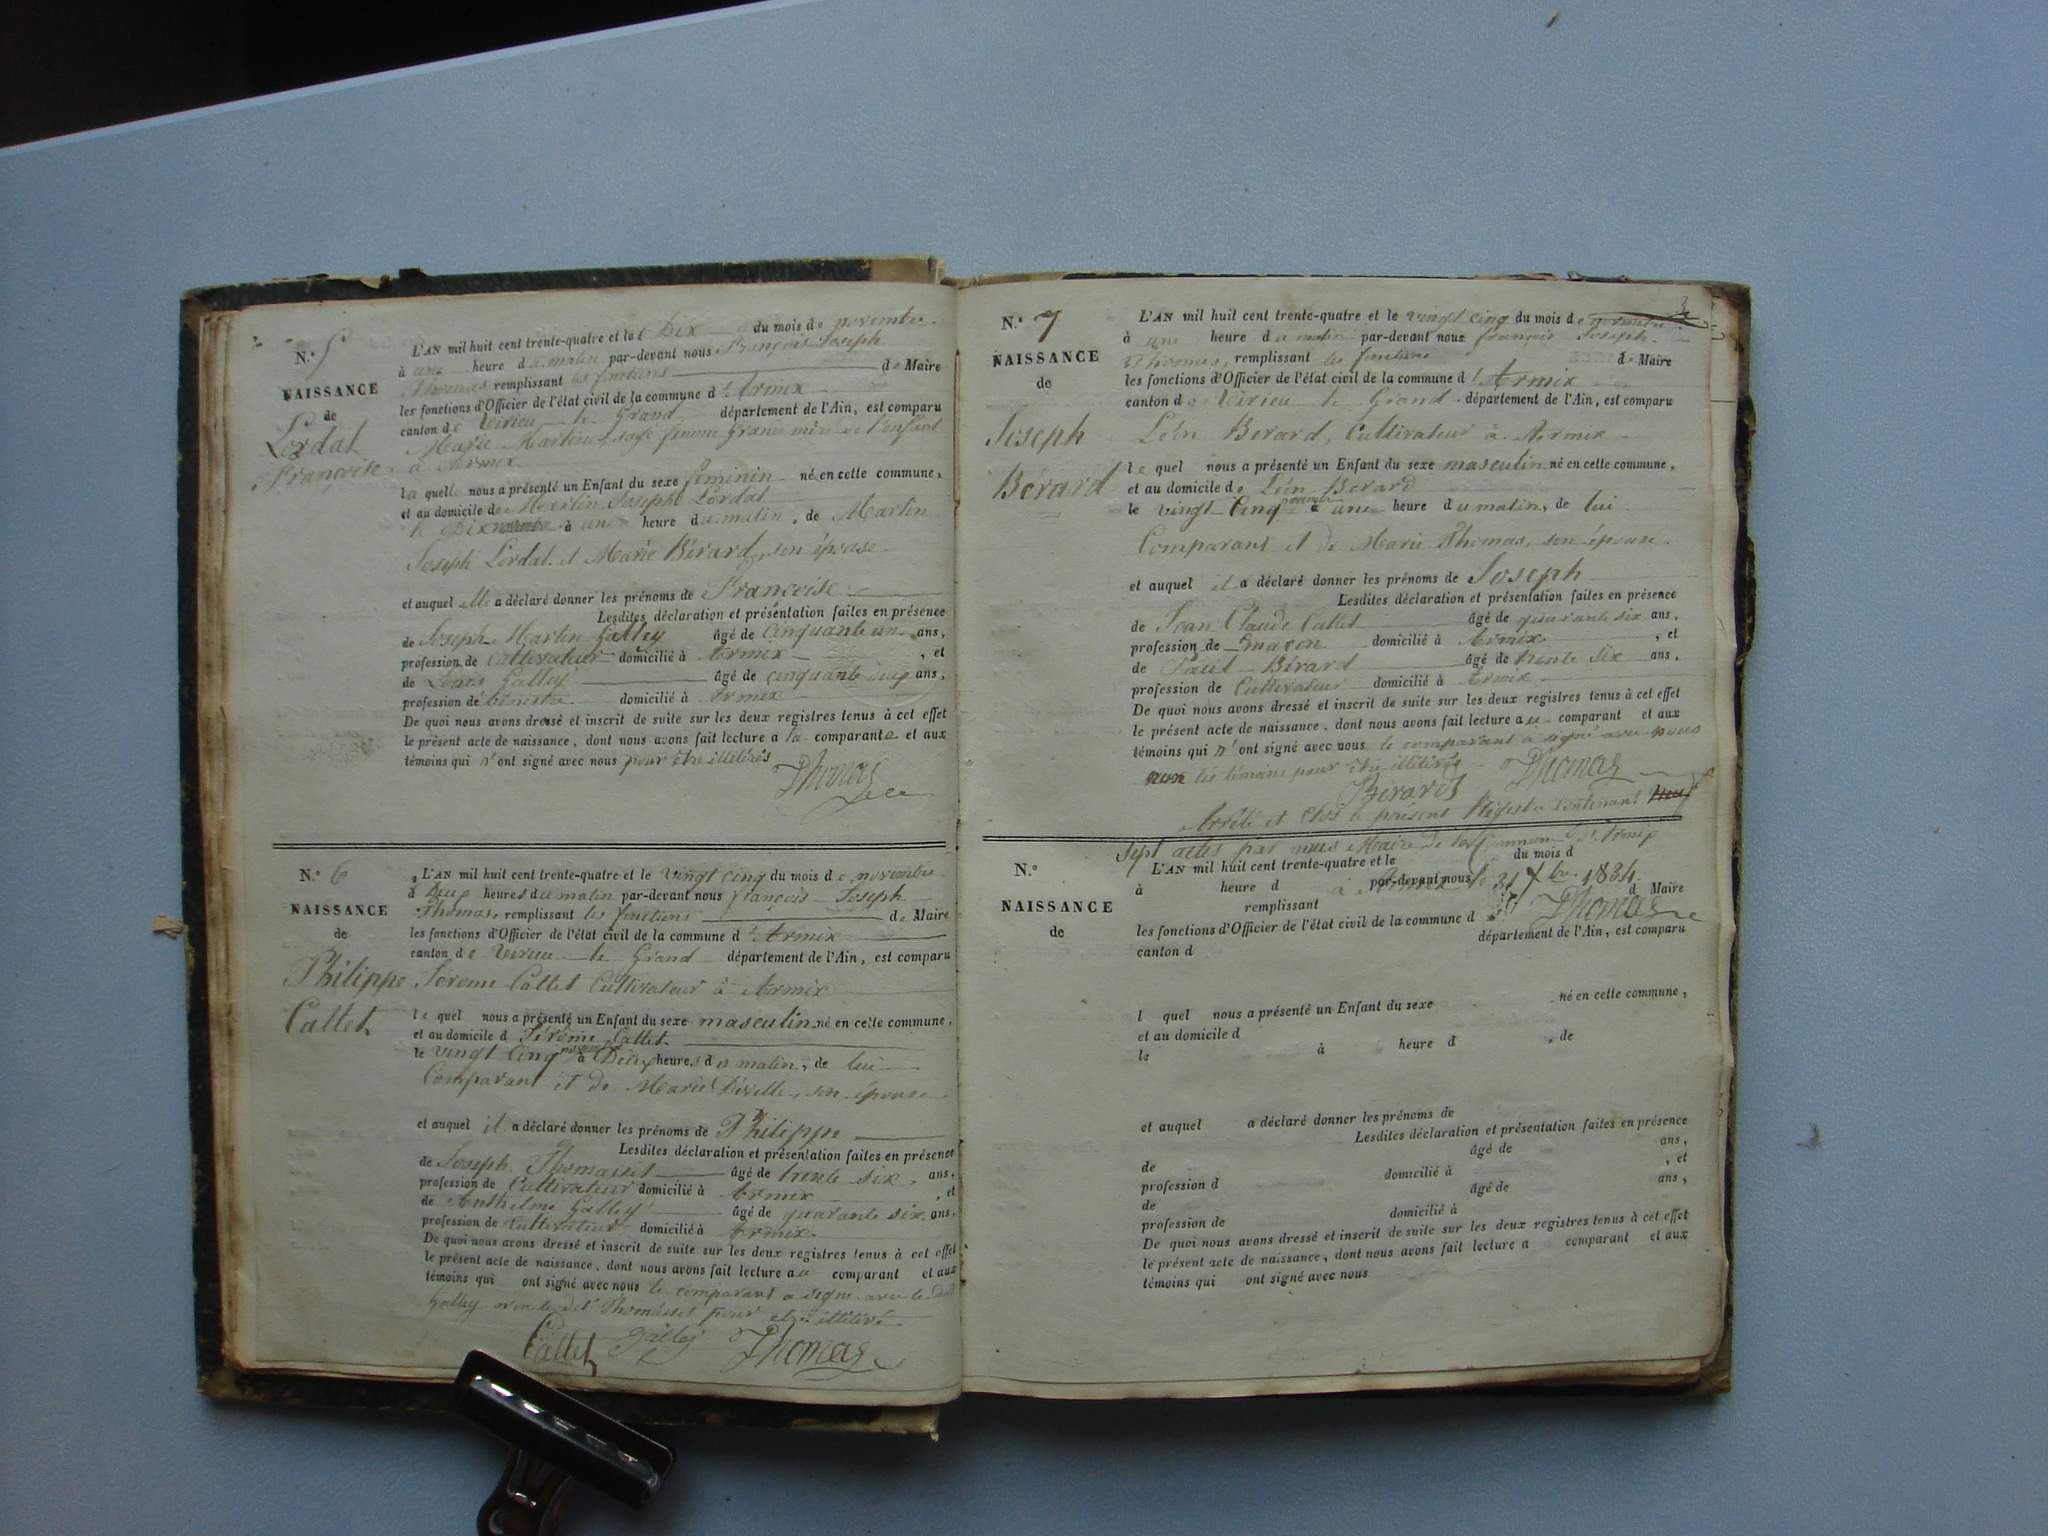 N.° 5
NAISSANCE
de
Lordat
Françoise
L'AN mil huit cent trente-quatre et le Dix du mois de novembre
à une heure du matin par-devant nous François Joseph
Thomas remplissant les fonctions de Maire
les fonctions d'Officier de l'état civil de la commune d'Armix
canton de Virieu le Grand département de l'Ain, est comparu
Marie Martine sage femme Grand mère de l'enfant
à Armix
la quelle nous a présenté un Enfant du sexe féminin né en cette commune,
et au domicile de Martin Joseph Lordat
le Dix novembre à une heure du matin, de Martin
Joseph Lordat et Marie Bérard, son épouse
et auquel elle a déclaré donner les prénoms de Françoise
Lesdites déclaration et présentation faites en présence
de Joseph Martin Galley âgé de Cinquante un ans,
profession de Cultivateur domicilié à Armix, et
de Louis Galley âgé de cinquante deux ans,
profession de domicilié à Armix
De quoi nous avons dressé et inscrit de suite sur les deux registres tenus à cet effet
le présent acte de naissance, dont nous avons fait lecture a la comparante et aux
témoins qui n'ont signé avec nous pour être illitérés
Thomas
N.° 6
NAISSANCE
de
Philippe
Callet
L'AN mil huit cent trente-quatre et le vingt cinq du mois de novembre
à Deux heures du matin par-devant nous françois Joseph
Thomas, remplissant les fonctions de Maire
les fonctions d'Officier de l'état civil de la commune d'Armix
canton de Virieu le Grand département de l'Ain, est comparu
Jerome Callet Cultivateur à Armix
le quel nous a présenté un Enfant du sexe masculin né en cette commune,
et au domicile d Jérôme Callet
le vingt Cinq novembre à Deux heures du matin, de lui
Comparant et de Marie Diville, son épouse
et auquel il a déclaré donner les prénoms de Philippe
Lesdites déclaration et présentation faites en présence
de Joseph Thomasset âgé de trente six ans,
profession de Cultivateur domicilié à Armix, et
de Anthelme Galley âgé de quarante six ans.
profession de Cultivateur domicilié à Armix.
De quoi nous avons dressé et inscrit de suite sur les deux registres tenus à cet effet
le présent acte de naissance, dont nous avons fait lecture au comparant et aux
témoins qui ont signé avec nous le comparant a signé avec le dit
Galley non le dit Thomasset pour etre illitéré
Callet Galley Thomas
3
N.° 7
NAISSANCE
de
Joseph
Bérard
L'AN mil huit cent trente-quatre et le vingt cinq du mois de novembre
à une heure du matin par-devant nous françois Joseph
Thomas, remplissant les fonctions de Maire
les fonctions d'Officier de l'état civil de la commune d'Armix
canton de Virieu le Grand département de l'Ain, est comparu
Léon Berard, Cultivateur à Armix
le quel nous a présenté un Enfant du sexe masculin né en cette commune,
et au domicile de Léon Berard
le vingt Cinq novembre à une heure du matin, de lui
Comparant et de Marie Thomas, son épouse
et auquel il a déclaré donner les prénoms de Joseph
Lesdites déclaration et présentation faites en présence
de Jean Claude Callet âgé de quarante six ans,
profession de maçon domicilié à Armix, et
de Paul Bérard âgé de trente six ans,
profession de Cultivateur domicilié à Armix
De quoi nous avons dressé et inscrit de suite sur les deux registres tenus à cet effet
le présent acte de naissance, dont nous avons fait lecture au comparant et aux
témoins qui n'ont signé avec nous le comparant a signé avec nous
non les témoins pour être illitérés Thomas
Bérard
Arrêté et Clos le présent Régistre Contenant
Sept actes par nous Maire de la Commune d'Armix
à Armix le 31 Xbre 1834.
Thomas
N.°
NAISSANCE
de
L'AN mil huit cent trente-quatre et le du mois d
à heure d par-devant nous
remplissant d Maire
les fonctions d'Officier de l'état civil de la commune d
canton d département de l'Ain, est comparu
l quel nous a présenté un Enfant du sexe né en cette commune,
et au domicile d
le à heure d , de
et auquel a déclaré donner les prénoms de
Lesdites déclaration et présentation faites en présence
de âgé de ans,
profession d domicilié à , et
de âgé de ans,
profession de domicilié à
De quoi nous avons dressé et inscrit de suite sur les deux registres tenus à cet effet
le présent acte de naissance, dont nous avons fait lecture a comparant et aux
témoins qui ont signé avec nous